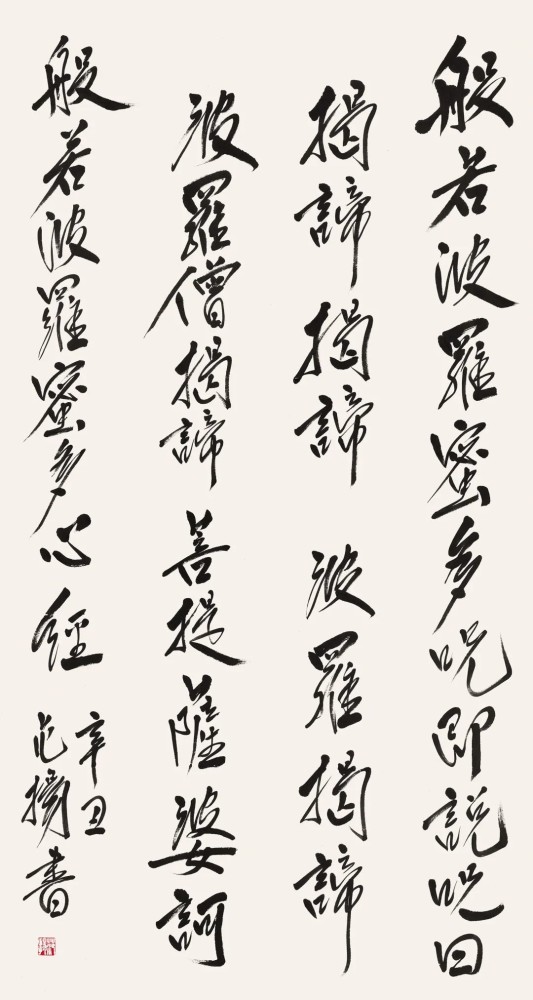 般若波羅蜜多咒即說咒曰
揭諦揭諦 波羅揭諦
波羅僧揭諦 菩提薩婆訶
般若波羅蜜多心經
辛丑
書